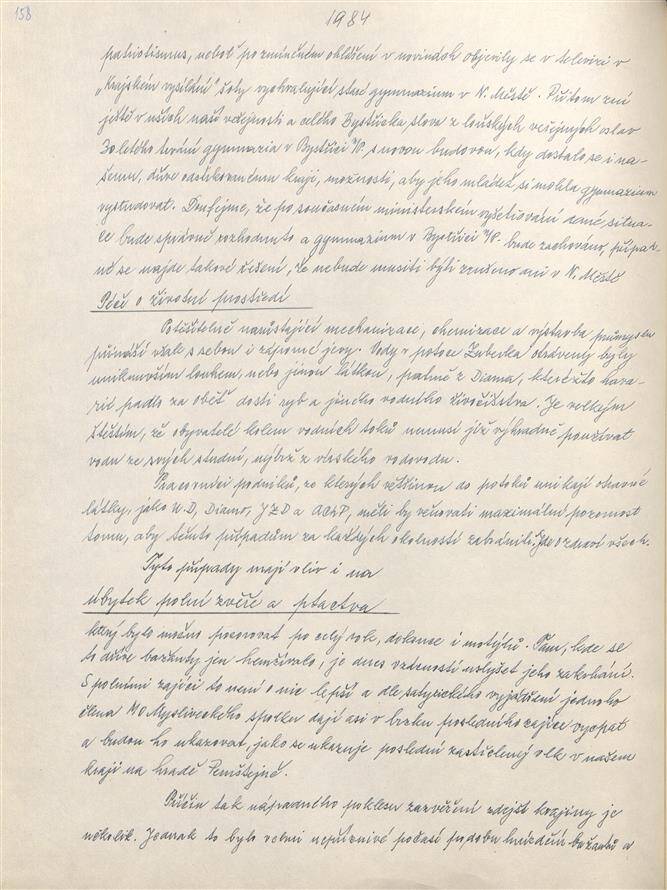 158
1984
patriotismus, neboť po zmíněném ohlášení v novinách objevily se v televizi v
„Krajském vysílání" šoty vychvalující staré gymnazium v N. Městě. Při tom zní
ještě v uších naší veřejnosti a celého Bystřicka slova z loňských veřejných oslav
30 letého trvání gymnazia v Bystřici n/P. s novou budovou, kdy dostalo se i na-
šemu, dříve odstrkovanému kraji, možnosti, aby jeho mládež si mohla gymnazium
vystudovat. Doufejme, že po současném ministerském vyšetřování celé situa-
ce bude správně rozhodnuto a gymnazium v Bystřici n/P. bude zachováno, případ-
ně se najde takové řešení, že nebude musiti býti zrušeno ani v N. Městě
Péče o životní prostředí
Potěšitelně narůstající mechanizace, chemizace a výstavba průmyslu
přináší však s sebou i záporné jevy. Vody v potoce otráveny byly
uniknuvším louhem, nebo jinou látkou, patrně z Diama, kteréžto hava-
rii padlo za oběť dosti ryb a jiného vodního živočišstva. Je velkým
štěstím, že obyvatelé kolem vodních toků nemusí již výhradně používat
vodu ze svých studní, nýbrž z vírského vodovodu.
Pracovníci podniků, ze kterých většinou do potoků unikají otravné
látky, jako U D, Diamo, JZD a ACHP, měli by věnovati maximální pozornost
tomu, aby těmto případům za každých okolností zabránili. Jde o zdraví všech.
Tyto případy mají vliv i na
úbytek polní zvěře a ptactva
který bylo možno pozorovat po celý rok, dokonce i motýlů. Tam, kde se
to dříve bažanty jen hemžívalo, je dnes vzácností uslyšet jeho zakokrhání.
S polními zajíci to není o nic lepší a dle satyrického vyjádření jednoho
člena MO Mysliveckého spolku dají asi v brzku posledního zajíce vycpat
a budou ho ukazovat, jako se ukazuje poslední zastřelený vlk v našem
kraji na hradě Pernštejně.
Příčin tak nápadného poklesu zazvěření zdejší krajiny je
několik. Jednak to bylo velmi nepříznivé počasí v dobu hnízdění bažantů a